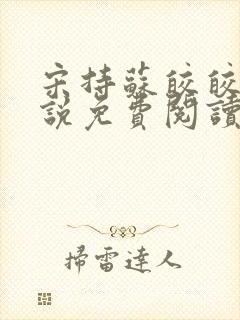 宋持蘇皎皎
説免費閱讀
掃雷達人